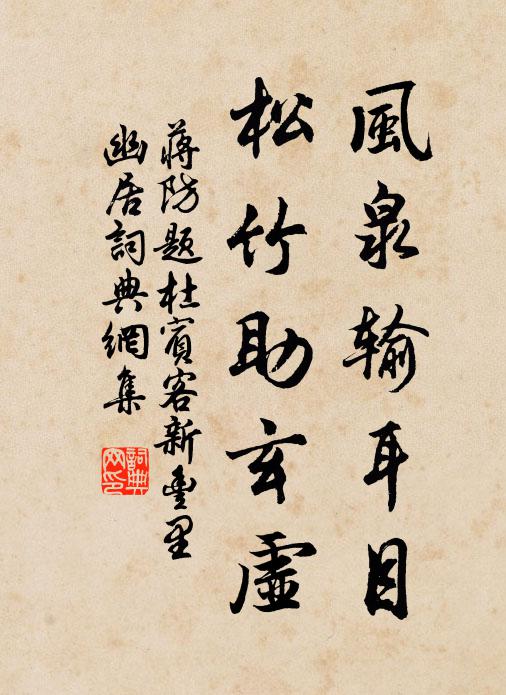 風泉輸耳目
松竹助玄虛
蔣防題杜賓客新豐里
幽居詞典網集
詞典網印